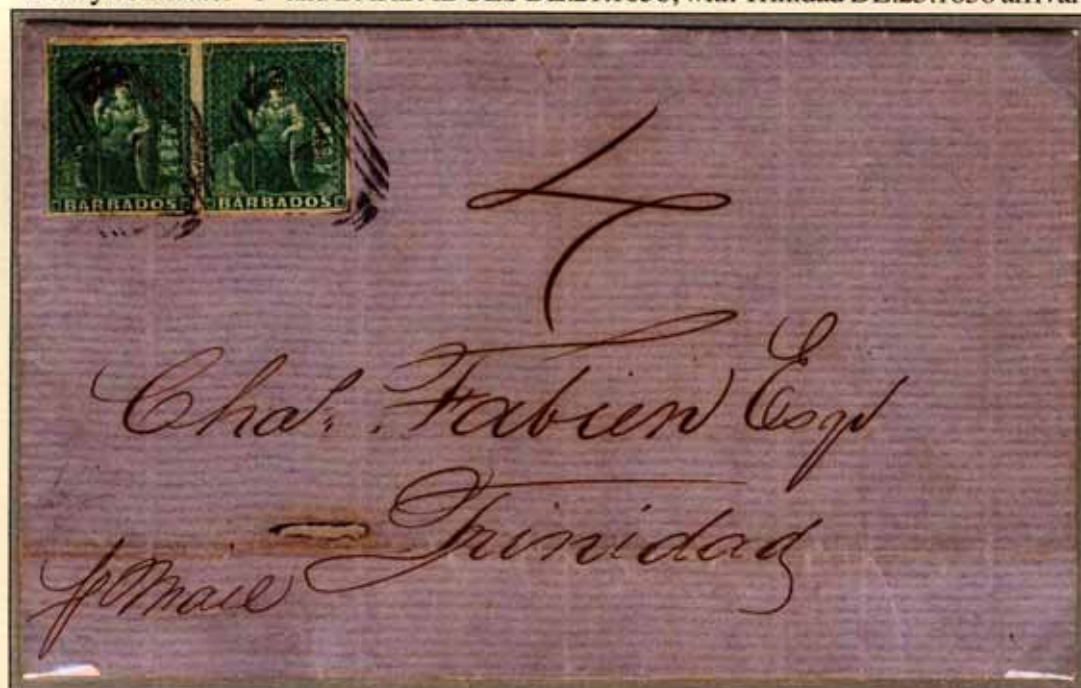 BARBADOS BARBADOS
4
Chas. Fabien Esqr
Trinidad
p Mail